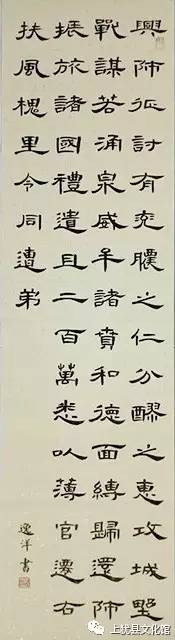 興師征討有兗膿之仁分醪之惠攻城野
戰謀若涌泉威牟諸賁和德面縛歸還師
振旅諸國禮遺且二百萬悉以薄官遷右
扶風槐里令同遭弟
逸洋書
县文化馆